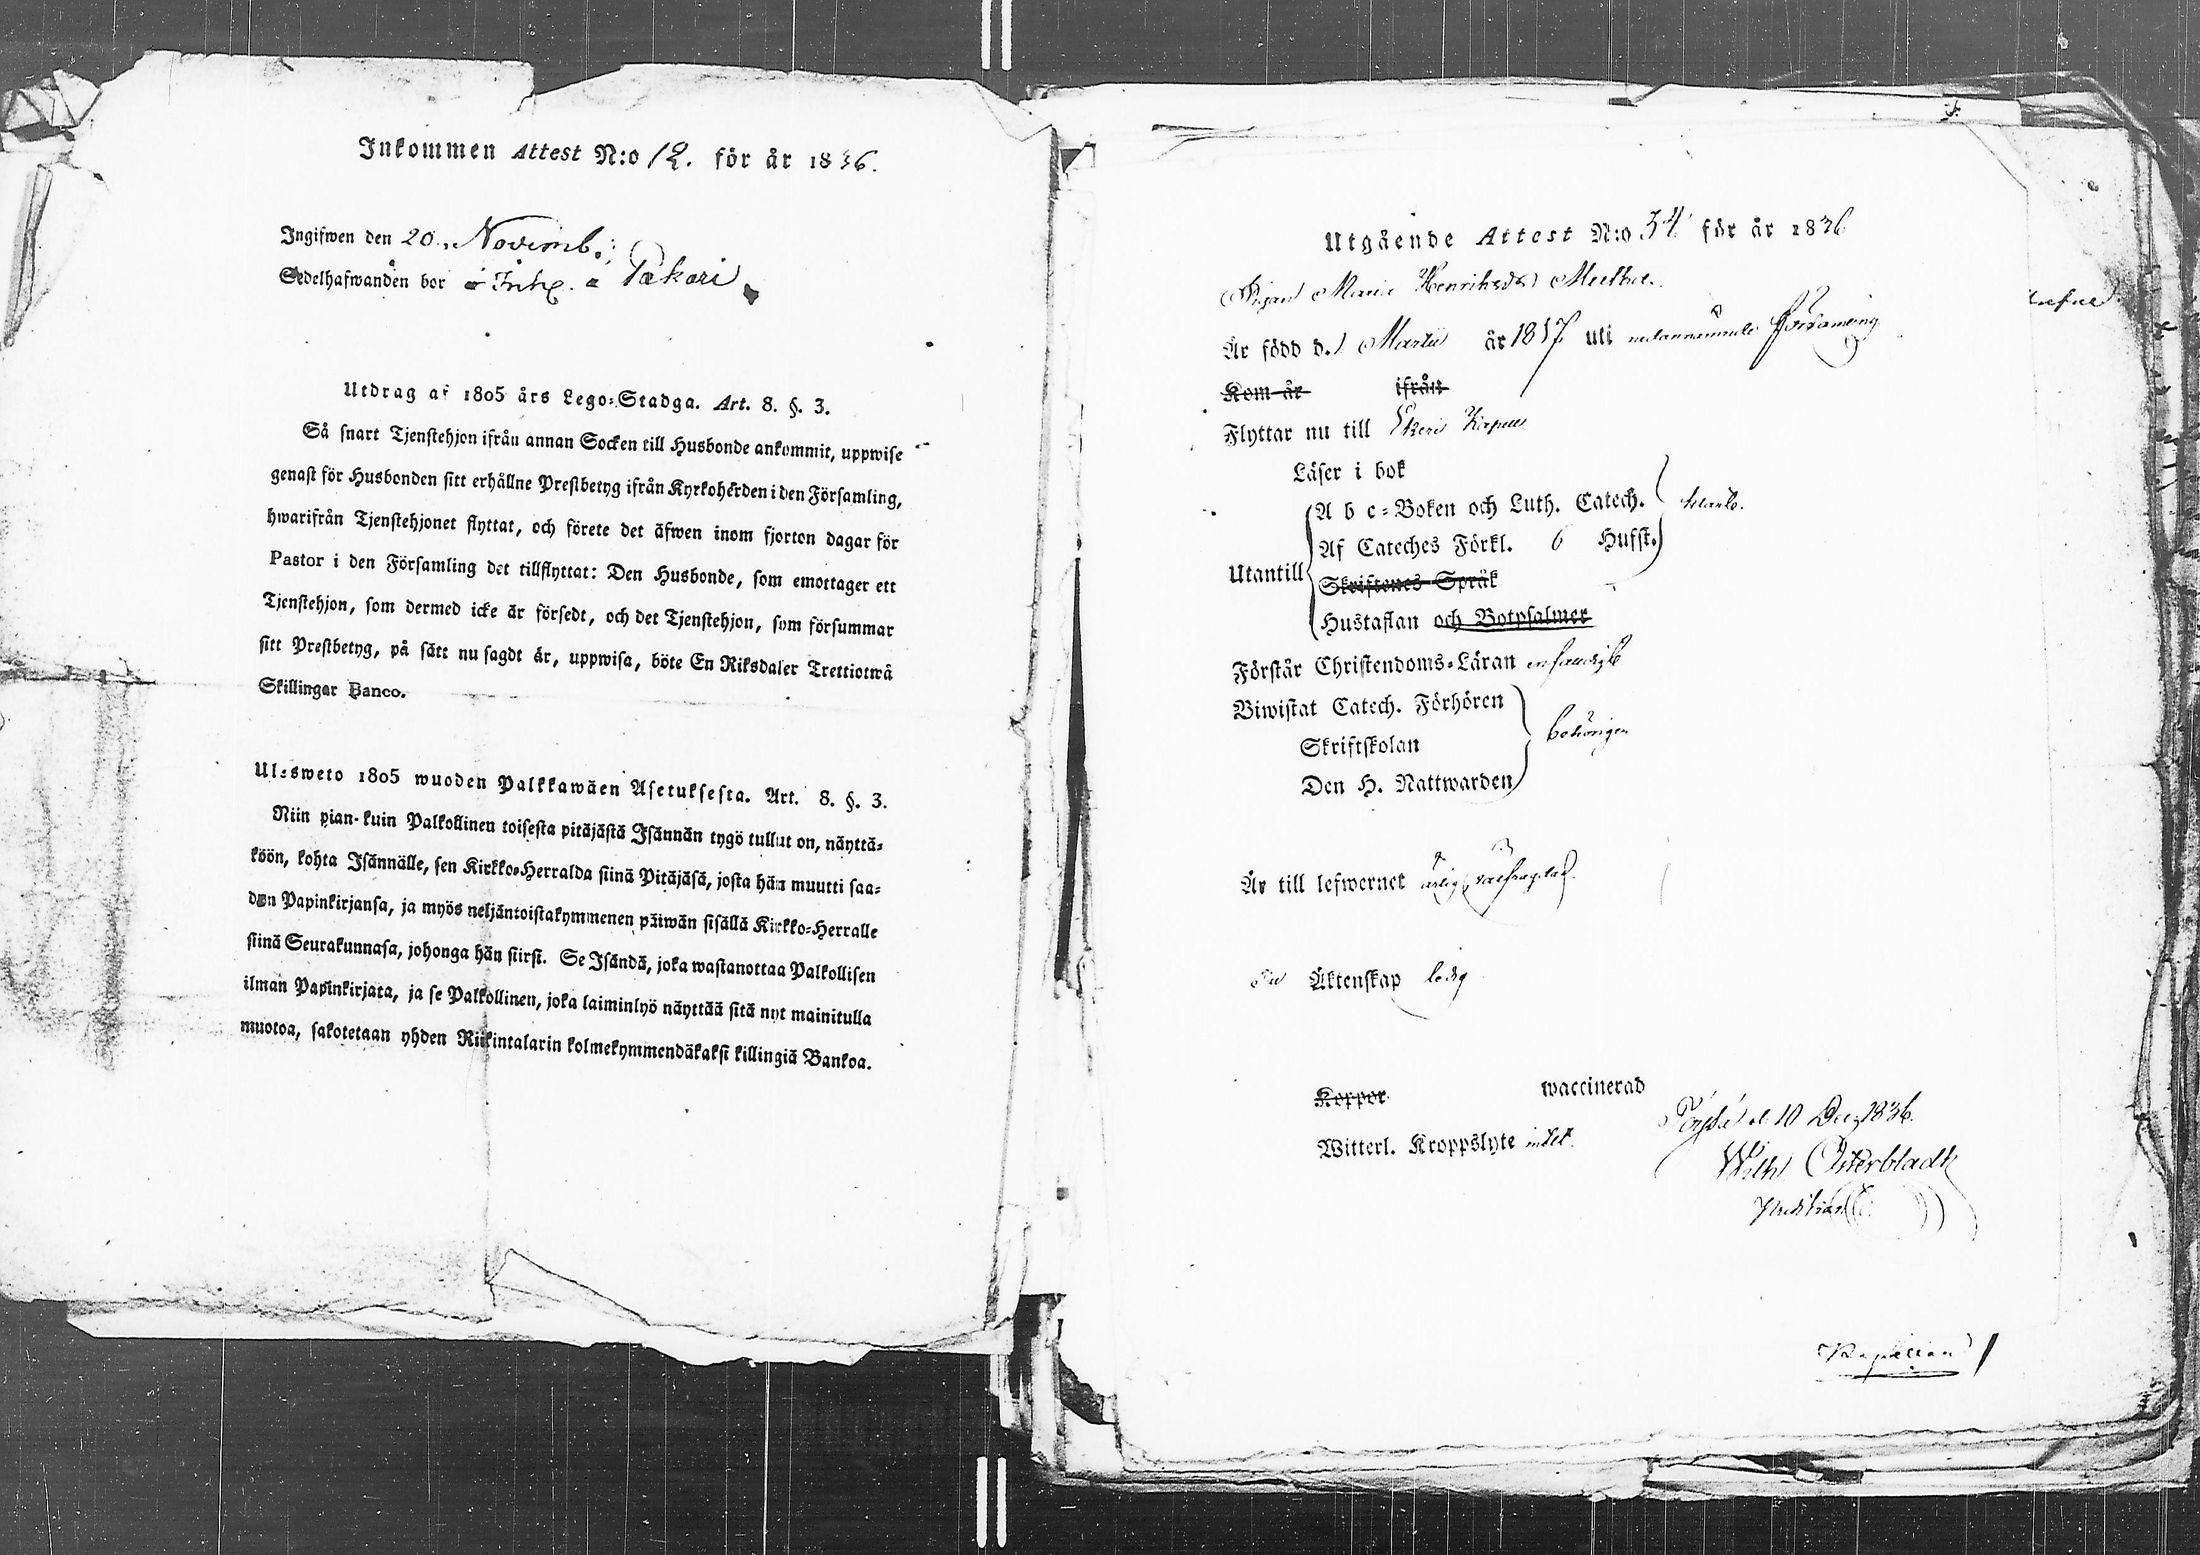 Inkommen Attest N:o 12. för år 1836.
Ingifwen den 20. Novemb.:
Sedelhafwanden bor å Inhs. å Pakari
Utdrag af 1805 års Lego-Stadga. Art. 8. §. 3.
Så snart Tjenstehjon ifrån annan Socken till Husbonde ankommit, uppwise
genast för Husbonden sitt erhållne Prestbetyg ifrån Kyrkoherden i den Församling,
hwarifrån Tjenstehjonet flyttat, och förete det äfwen inom fjorton dagar för
Pastor i den Församling det tillflyttat: Den Husbonde, som emottager ett
Tjenstehjon, som dermed icke är försedt, och det Tjenstehjon, som försummar
sitt Prestbetyg, på sätt nu sagdt är, uppwisa, böte En Riksdaler Trettiotwå
Skillingar Banco.
Ulosweto 1805 wuoden Palkkawäen Asetuksesta. Art. 8. §. 3.
Niin pian-kuin Palkollinen toisesta pitäjästä Isännän tygö tullut on, näyttä-
köön, kohta Isännälle, sen Kirkko-Herralda siinä Pitäjäsä, josta hän muutti saa-
dun Papinkirjansa, ja myös neljäntoistakymmenen päiwän sisällä Kirkko-Herralle
siinä Seurakunnasa, johonga hän siirsi. Se Isändä, joka wastanottaa Palkollisen
ilman Papinkirjata, ja se Palkollinen, joka laiminlyö näyttää sitä nyt mainitulla
muotoa, sakotetaan yhden Riikintalarin kolmekymmendäkaksi killingiä Bankoa.
Utgående Attest N:o 34 för år 1836
Pigan Maria Henriksdr
Är född d. 1 Martii år 1817 uti nedannämnde Församling
Kom år ifrån
Flyttar nu till Ekeri Kapell
Läser i bok
A b c-Boken och Luth. Catech.
Af Cateches Förkl. 6 Hufst.
klart.
Utantill
Skriftenes Språk
Hustaflan och Botpsalmer
Förstår Christendoms-Läran enfaldigt
Biwistat Catech. Förhören
Skriftskolan
Den H. Nattwarden
behörigen
Är till lefwernet ärlig, välfrägdad.
Till Äktenskap ledig
Koppor waccinerad
Witterl. Kroppslyte intet.
d. 10 Dec. 1836.
Wilh Österbladh
Kapellan